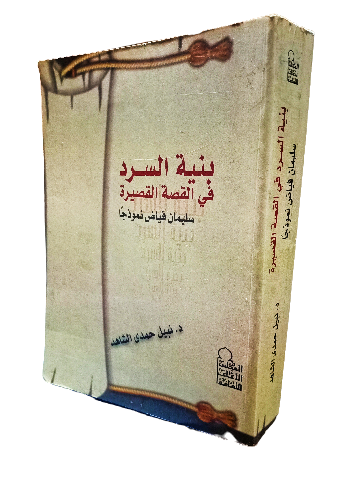 بنية السرد
في القصة القصيرة
سليمان فياض نموذجًا
د. نبيل حمدى الشاهد
المجلس
الأعلى
للثقافة
بنية السرد في القصة القصيرة
سليمان فياض نموذجًا
د. نبيل حمدى الشاهد